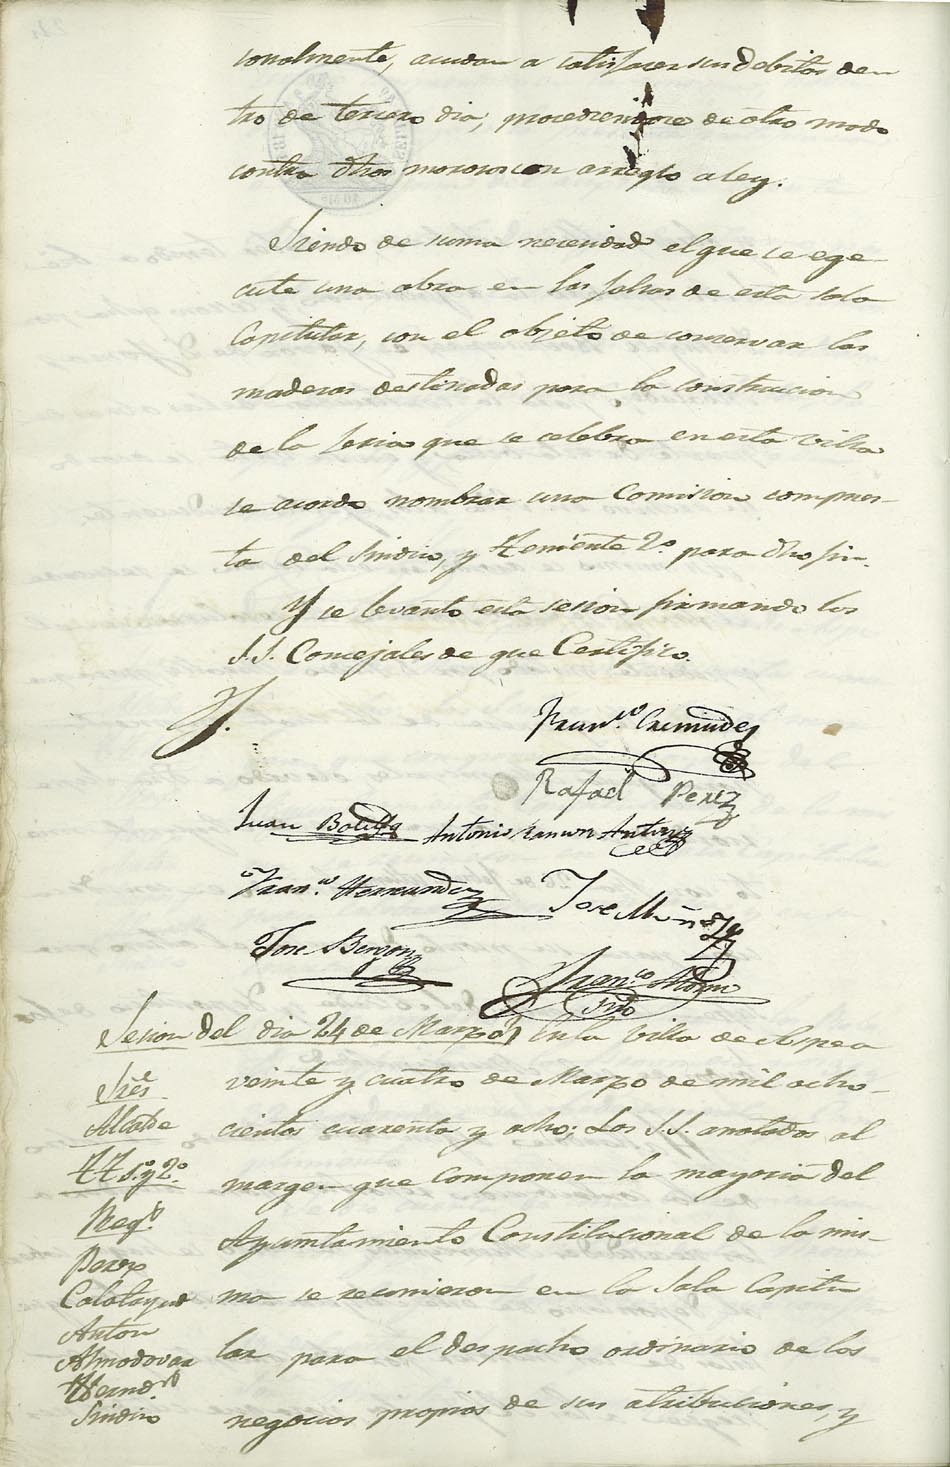 sonalmente, acudan a satisfacer sus debitos den
tro de tercero dia, procediendose de otro modo
contra dhos morosos con arreglo a ley.
Siendo de suma necesidad el que se ege
cute una obra en las faltas de esta sala
Capitular, con el objeto de conservar las
maderas destinadas para la construccion
de la feria que se celebra en esta villa
se acordo nombrar una Comision compues-
ta del Sindico, y Teniente 2º para dho fin.
Y se levantó esta sesion firmando los
S.S. Concejales de que Certifico.
Franco. Cremades
Rafael Perez
Juan Botella Antonio Ramon Antón
Franco. Hernandez Jose Muñoz
Jose Berzon
Franco
Srio
Sesion del dia 24 de Marzo) En la Villa de Aspe a
veinte y cuatro de Marzo de mil ocho-
cientos cuarenta y ocho; Los S.S. anotados al
margen que componen la mayoria del
Ayuntamiento Constitucional de la mis-
ma se reunieron en la Sala Capitu
lar para el despacho ordinario de los
negocios propios de sus atribuciones, y
Sres
Alcalde
TT 1º y 2º
Regs
Perez
Calatayud
Anton
Almodovar
Hernds
Sindico